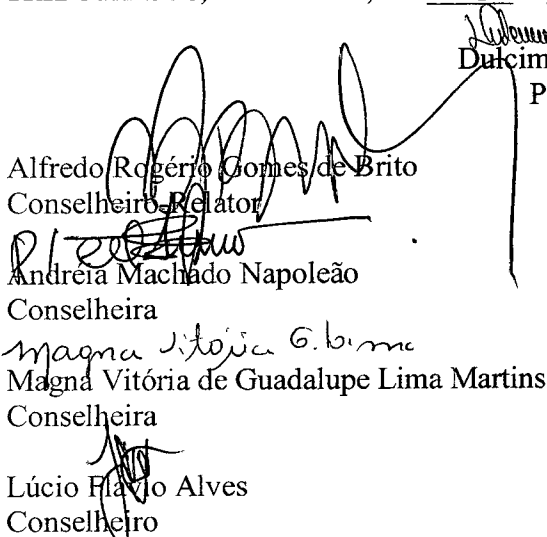 Dulcim
P
Alfredo Rogério Gomes de Brito
Conselheiro Relator
Andréia Machado Napoleão
Conselheira
Magna Vitória G. Lima
Magna Vitória de Guadalupe Lima Martins
Conselheira
Lúcio Flávio Alves
Conselheiro